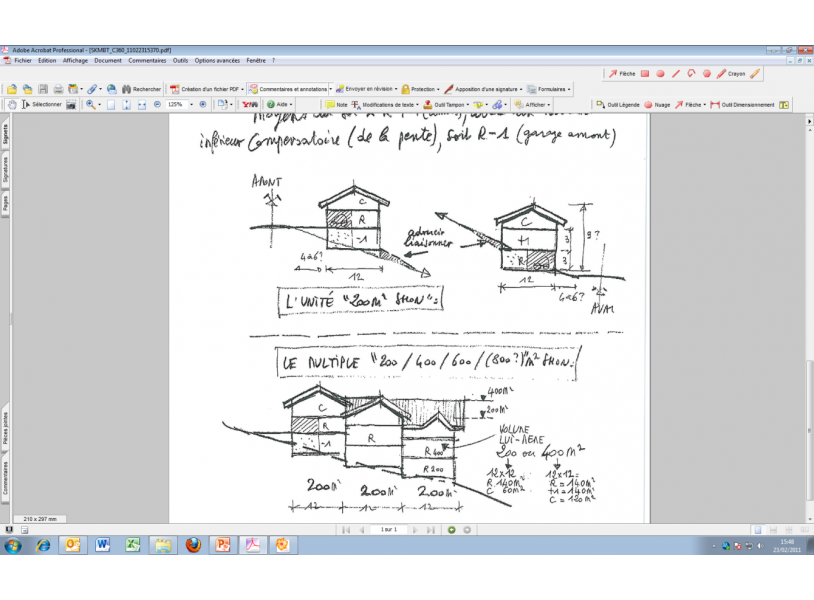 Adobe Acrobat Professional - [SKMBT_C360_11022315370.pdf]
Fichier Edition Affichage Document Commentaires Outils Options avancées Fenêtre ?
Flèche Crayon
Rechercher Création d'un fichier PDF Commentaires et annotations Envoyer en révision Protection Apposition d'une signature Formulaires
Sélectionner 125% Y! Aide Note Modifications de texte Outil Tampon Afficher Outil Légende Nuage Flèche Outil Dimensionnement
Signets
Signatures
Pages
Pièces jointes
Commentaires
inférieur compensatoire (de la pente), soit R-1 (garage amont)
AMONT
C
R
-1
4à6?
12
adoucir
liaisonner
C
+1
R
3
3
9?
12
4à6?
AVAL
L'UNITÉ "200m² SHON":
LE MULTIPLE "200/400/600/(800?)"m² SHON:
C
R
-1
R
R 400
R 200
400m²
200m²
VOLUME
LUI-MÊME
200 ou 400m²
12x12
R 140m²
C 60m²
12x12=
R = 140m²
+1 = 140m²
C = 120m²
200m² 200m² 200m²
12 12 12
210 x 297 mm
1 sur 1
15:48
23/02/2011